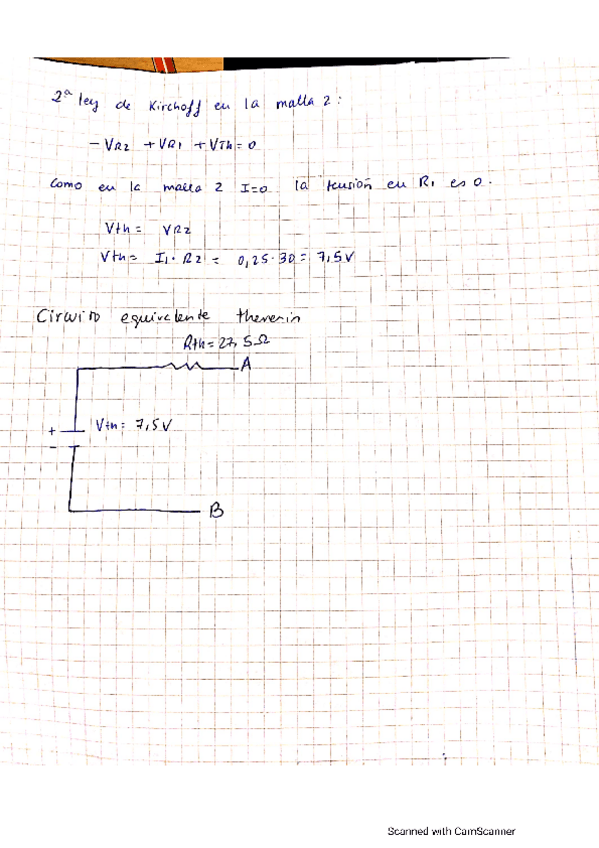 2ª ley de Kirchoff en la malla 2:
- VR2 + VR1 + VTh = 0
Como en la malla 2 I=0 la tensión en R1 es 0.
Vth = VR2
Vth = I1 · R2 = 0,25 · 30 = 7,5V
Circuito equivalente thevenin
Rth = 27,5Ω
A
+ Vth: 7,5V
-
B
Scanned with CamScanner